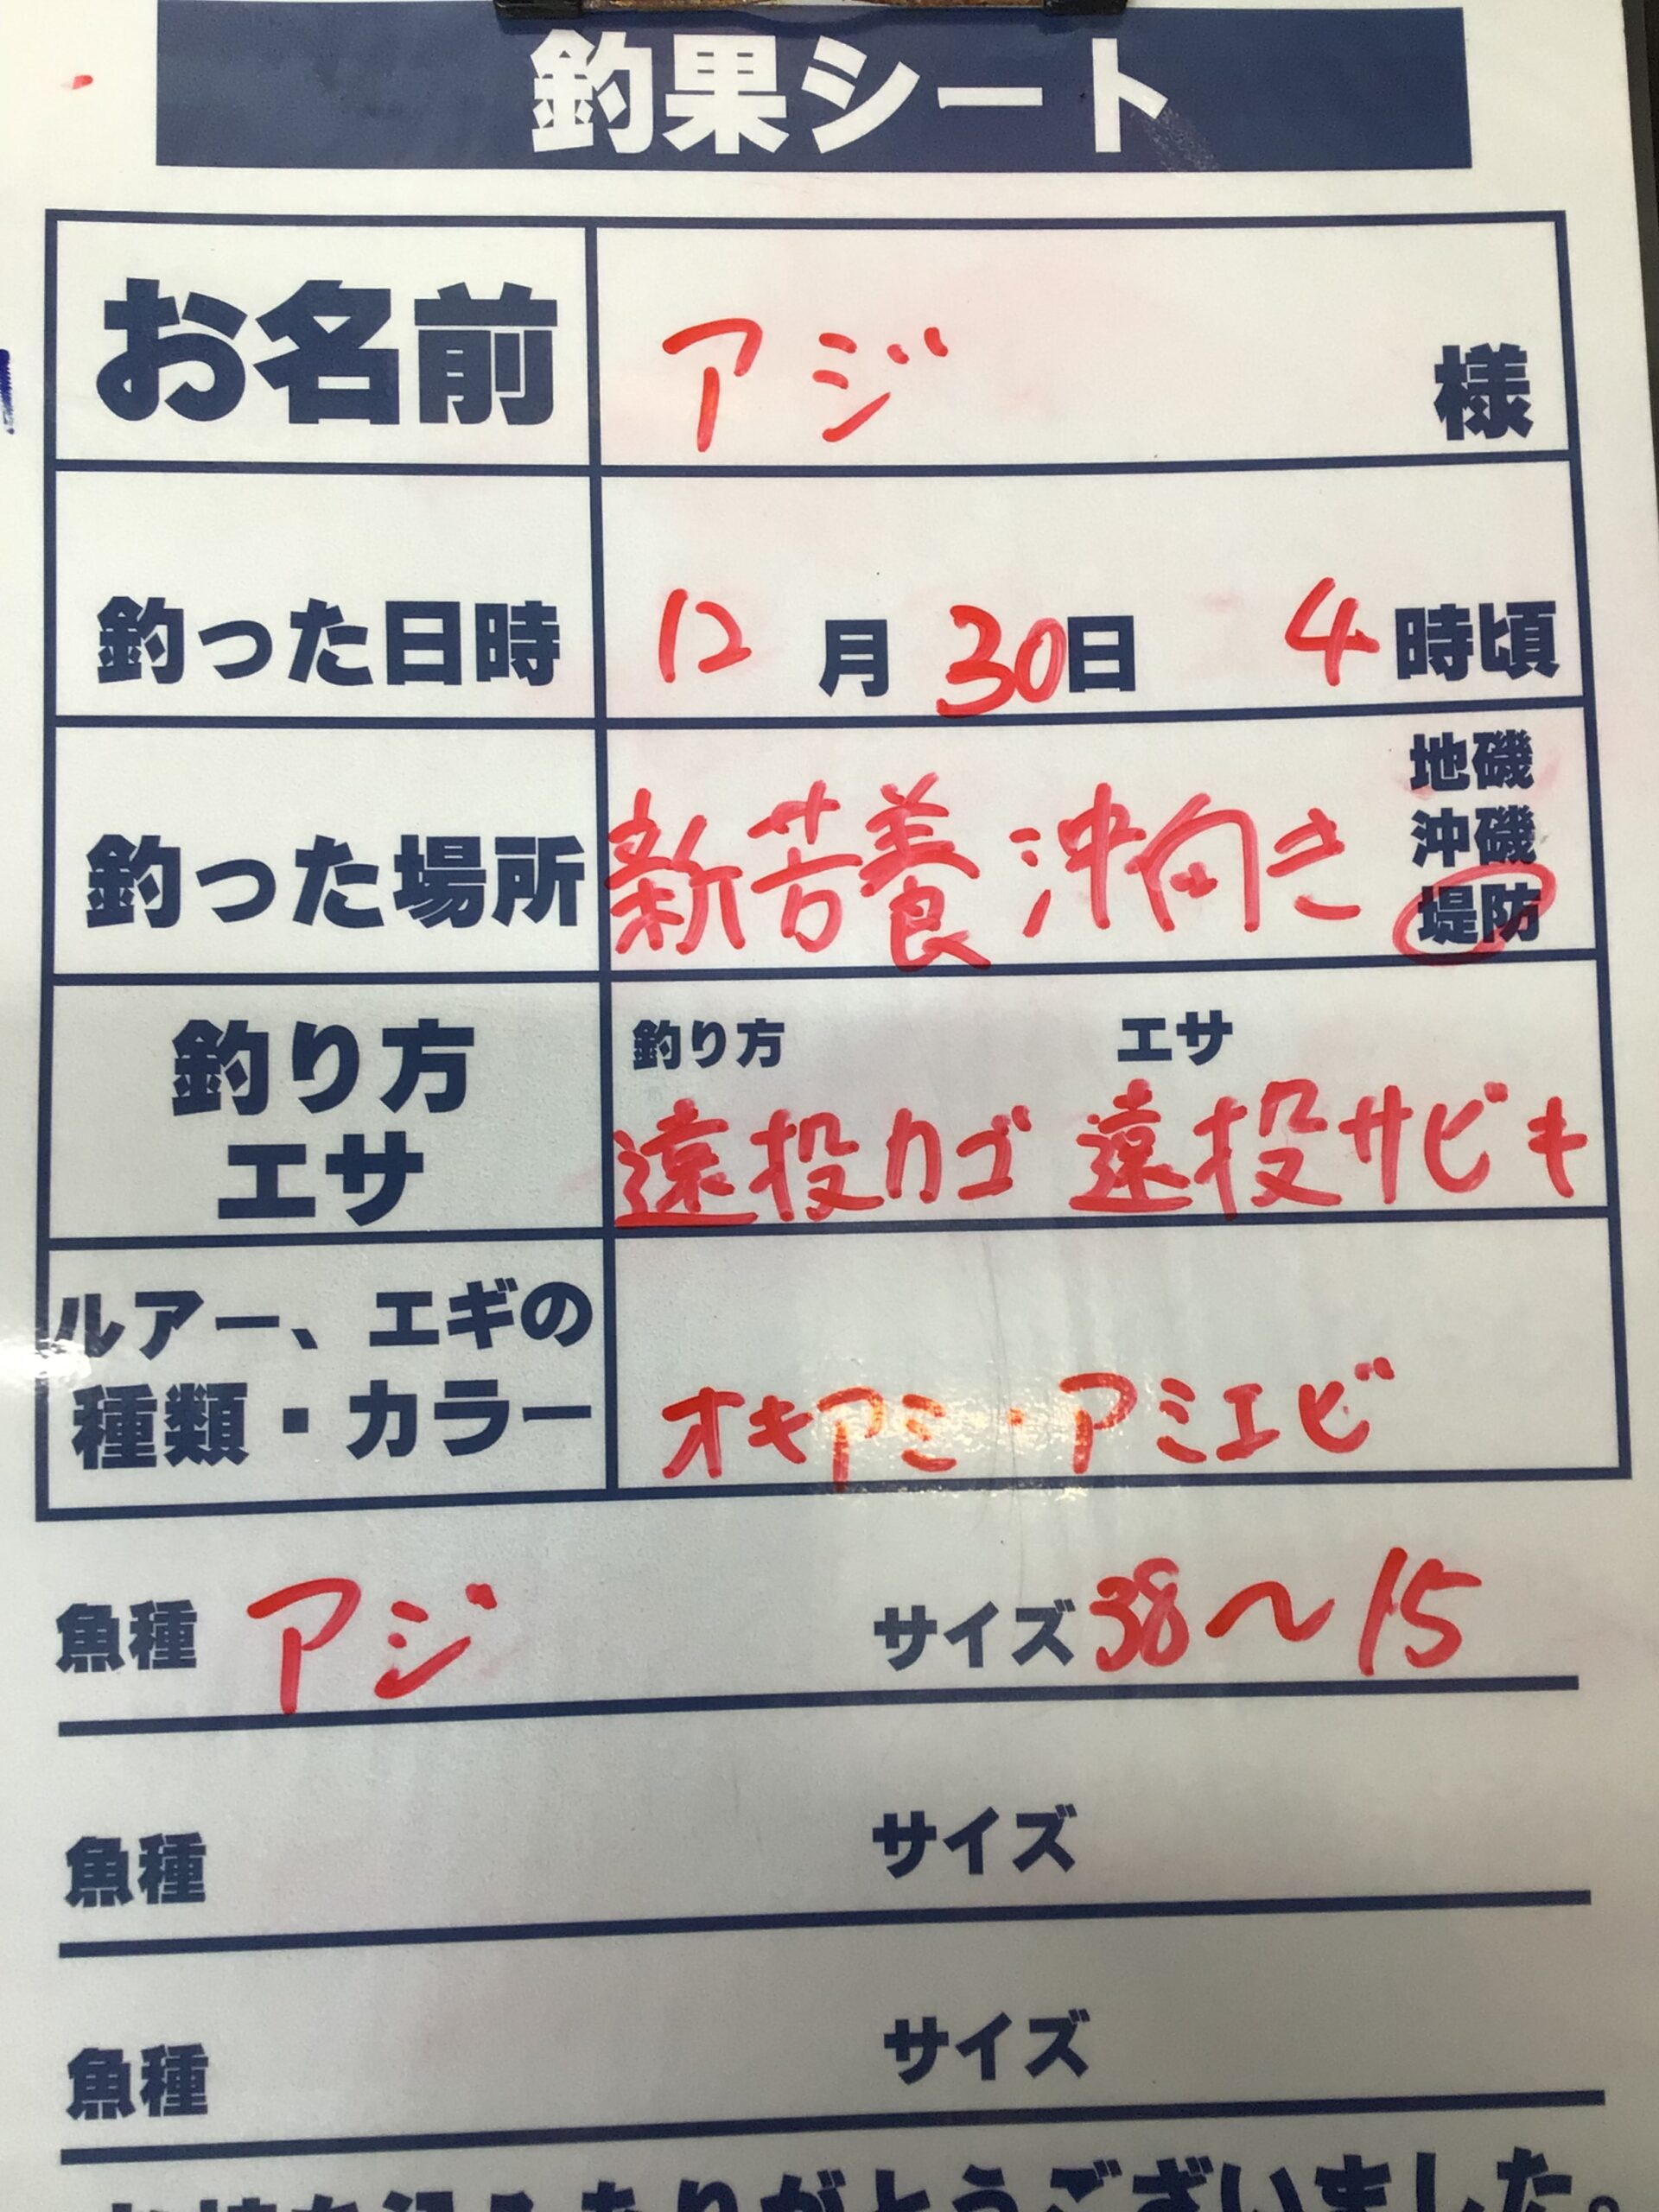 釣果シート
お名前 アジ 様
釣った日時 12月30日 4時頃
釣った場所 新苦養 沖向き 地磯 沖磯 堤防
釣り方 エサ
釣り方 エサ
遠投カゴ 遠投サビキ
ルアー、エギの
種類・カラー オキアミ・アミエビ
魚種 アジ サイズ 38〜15
魚種 サイズ
魚種 サイズ
ありがとうございました。